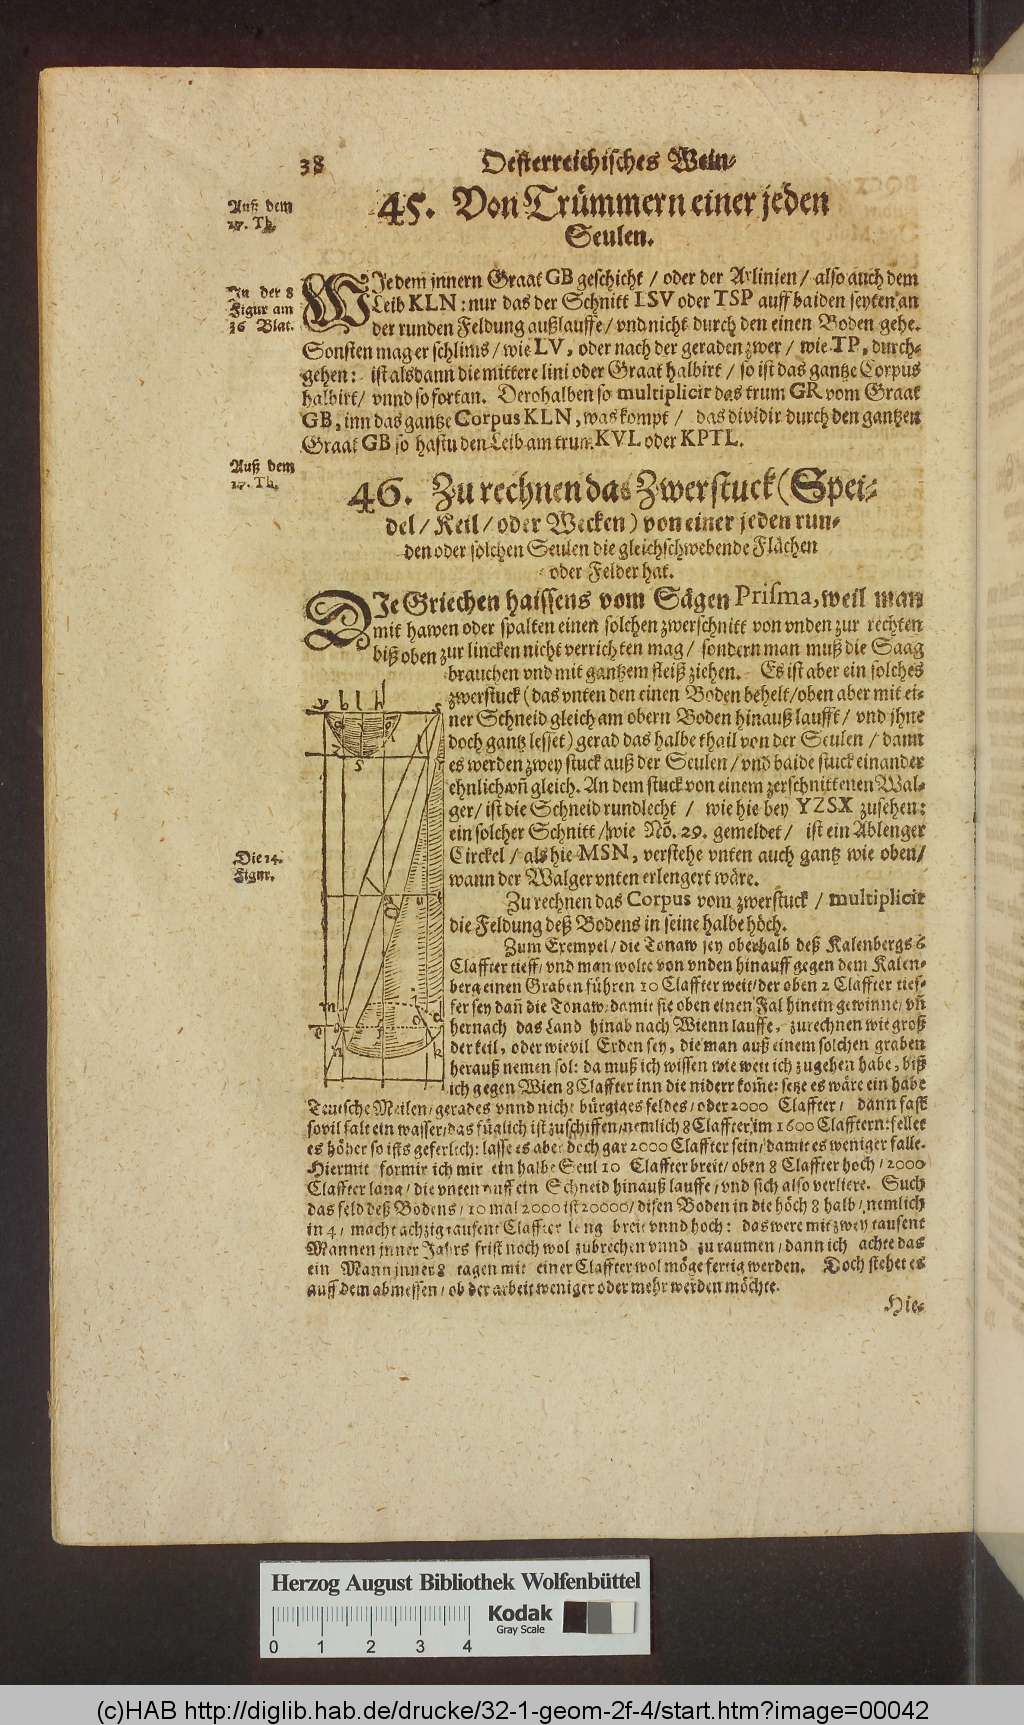 38
Oesterreichisches Wein-
Auß dem
17. Th.
45. Von Trümmern einer jeden
Seulen.
In der 8
Figur am
36 Blat.
WJe dem jnnern Graat GB geschicht / oder der Axlinien / also auch dem
Leib KLN: nur das der Schnitt ISV oder TSP auff baiden seyten an
der runden Feldung außlauffe / vnd nicht durch den einen Boden gehe.
Sonsten mag er schlims / wie LV, oder nach der geraden zwer / wie TP, durch-
gehen: ist alsdann die mittere lini oder Graat halbirt / so ist das gantze Corpus
halbirt / vnnd so fortan. Derohalben so multiplicir das trum GR vom Graat
GB, inn das gantze Corpus KLN, was kompt / das dividir durch den gantzen
Graat GB so hastu den Leib am trum KVL oder KPTL.
Auß dem
17. Th.
46. Zu rechnen das Zwerstuck (Spei-
del / Keil / oder Wecken) von einer jeden run-
den oder solchen Seulen die gleichschwebende Flächen
oder Felder hat.
DJe Griechen haissens vom Sägen Prisma, weil man
mit hawen oder spalten einen solchen zwerschnitt von vnden zur rechten
biß oben zur lincken nicht verrichten mag / sondern man muß die Saag
brauchen vnd mit gantzem fleiß ziehen. Es ist aber ein solches
zwerstuck (das vnten den einen Boden behelt / oben aber mit ei-
ner Schneid gleich am obern Boden hinauß laufft / vnd jhne
doch gantz lesset) gerad das halbe thail von der Seulen / dann
es werden zwey stuck auß der Seulen / vnd baide stuck einander
ehnlich vñ gleich. An dem stuck von einem zerschnittenen Wal-
ger / ist die Schneid rundlecht / wie hie bey YZSX zusehen:
ein solcher Schnitt / wie Nõ. 29. gemeldet / ist ein Ablenger
Circkel / als hie MSN, verstehe vnten auch gantz wie oben /
wann der Walger vnten erlengert wäre.
Die 14.
Figur.
Zu rechnen das Corpus vom zwerstuck / multiplicir
die Feldung deß Bodens in seine halbe höch.
Zum Exempel / die Tonaw sey oberhalb deß Kalenbergs 6
Claffter tieff / vnd man wolte von vnden hinauff gegen dem Kalen-
berg einen Graben führen 10 Claffter weit / der oben 2 Claffter tief-
fer sey dañ die Tonaw / damit sie oben einen Fal hinein gewinne / vñ
hernach das Land hinab nach Wienn lauffe, zurechnen wie groß
der keil, oder wievil Erden sey, die man auß einem solchen graben
herauß nemen sol: da muß ich wissen wie weit ich zugehen habe, biß
ich gegen Wien 8 Claffter inn die nidere kom̃e: setze es wäre ein habe
Teutsche Meilen / gerades vnnd nicht bürgiges feldes / oder 2000 Claffter / dann fast
sovil falt ein wasser / das füglich ist zuschiffen / nemlich 8 Claffter / im 1600 Clafftern: fellet
es höher so ists geferlich: lasse es aber doch gar 2000 Claffter sein / damit es weniger falle.
Hiermit formir ich mir ein halbe Seul 10 Claffter breit / oben 8 Claffter hoch / 2000
Claffter lang / die vnten auff ein Schneid hinauß lauffe / vnd sich also verliere. Such
das feld deß Bodens / 10 mal 2000 ist 20000 / disen Boden in die höch 8 halb / nemlich
in 4 / macht achzig tausent Claffter leng breit vnnd hoch: das were mit zwey tausent
Mannen jnner Jahrs frist noch wol zubrechen vnnd zu raumen / dann ich achte das
ein Mann jnner 8 tagen mit einer Claffter wol möge fertig werden. Doch stehet es
auff dem abmessen / ob der arbeit weniger oder mehr werden möchte.
Hie-
Herzog August Bibliothek Wolfenbüttel
Kodak
Gray Scale
0 1 2 3 4
(c)HAB http://diglib.hab.de/drucke/32-1-geom-2f-4/start.htm?image=00042